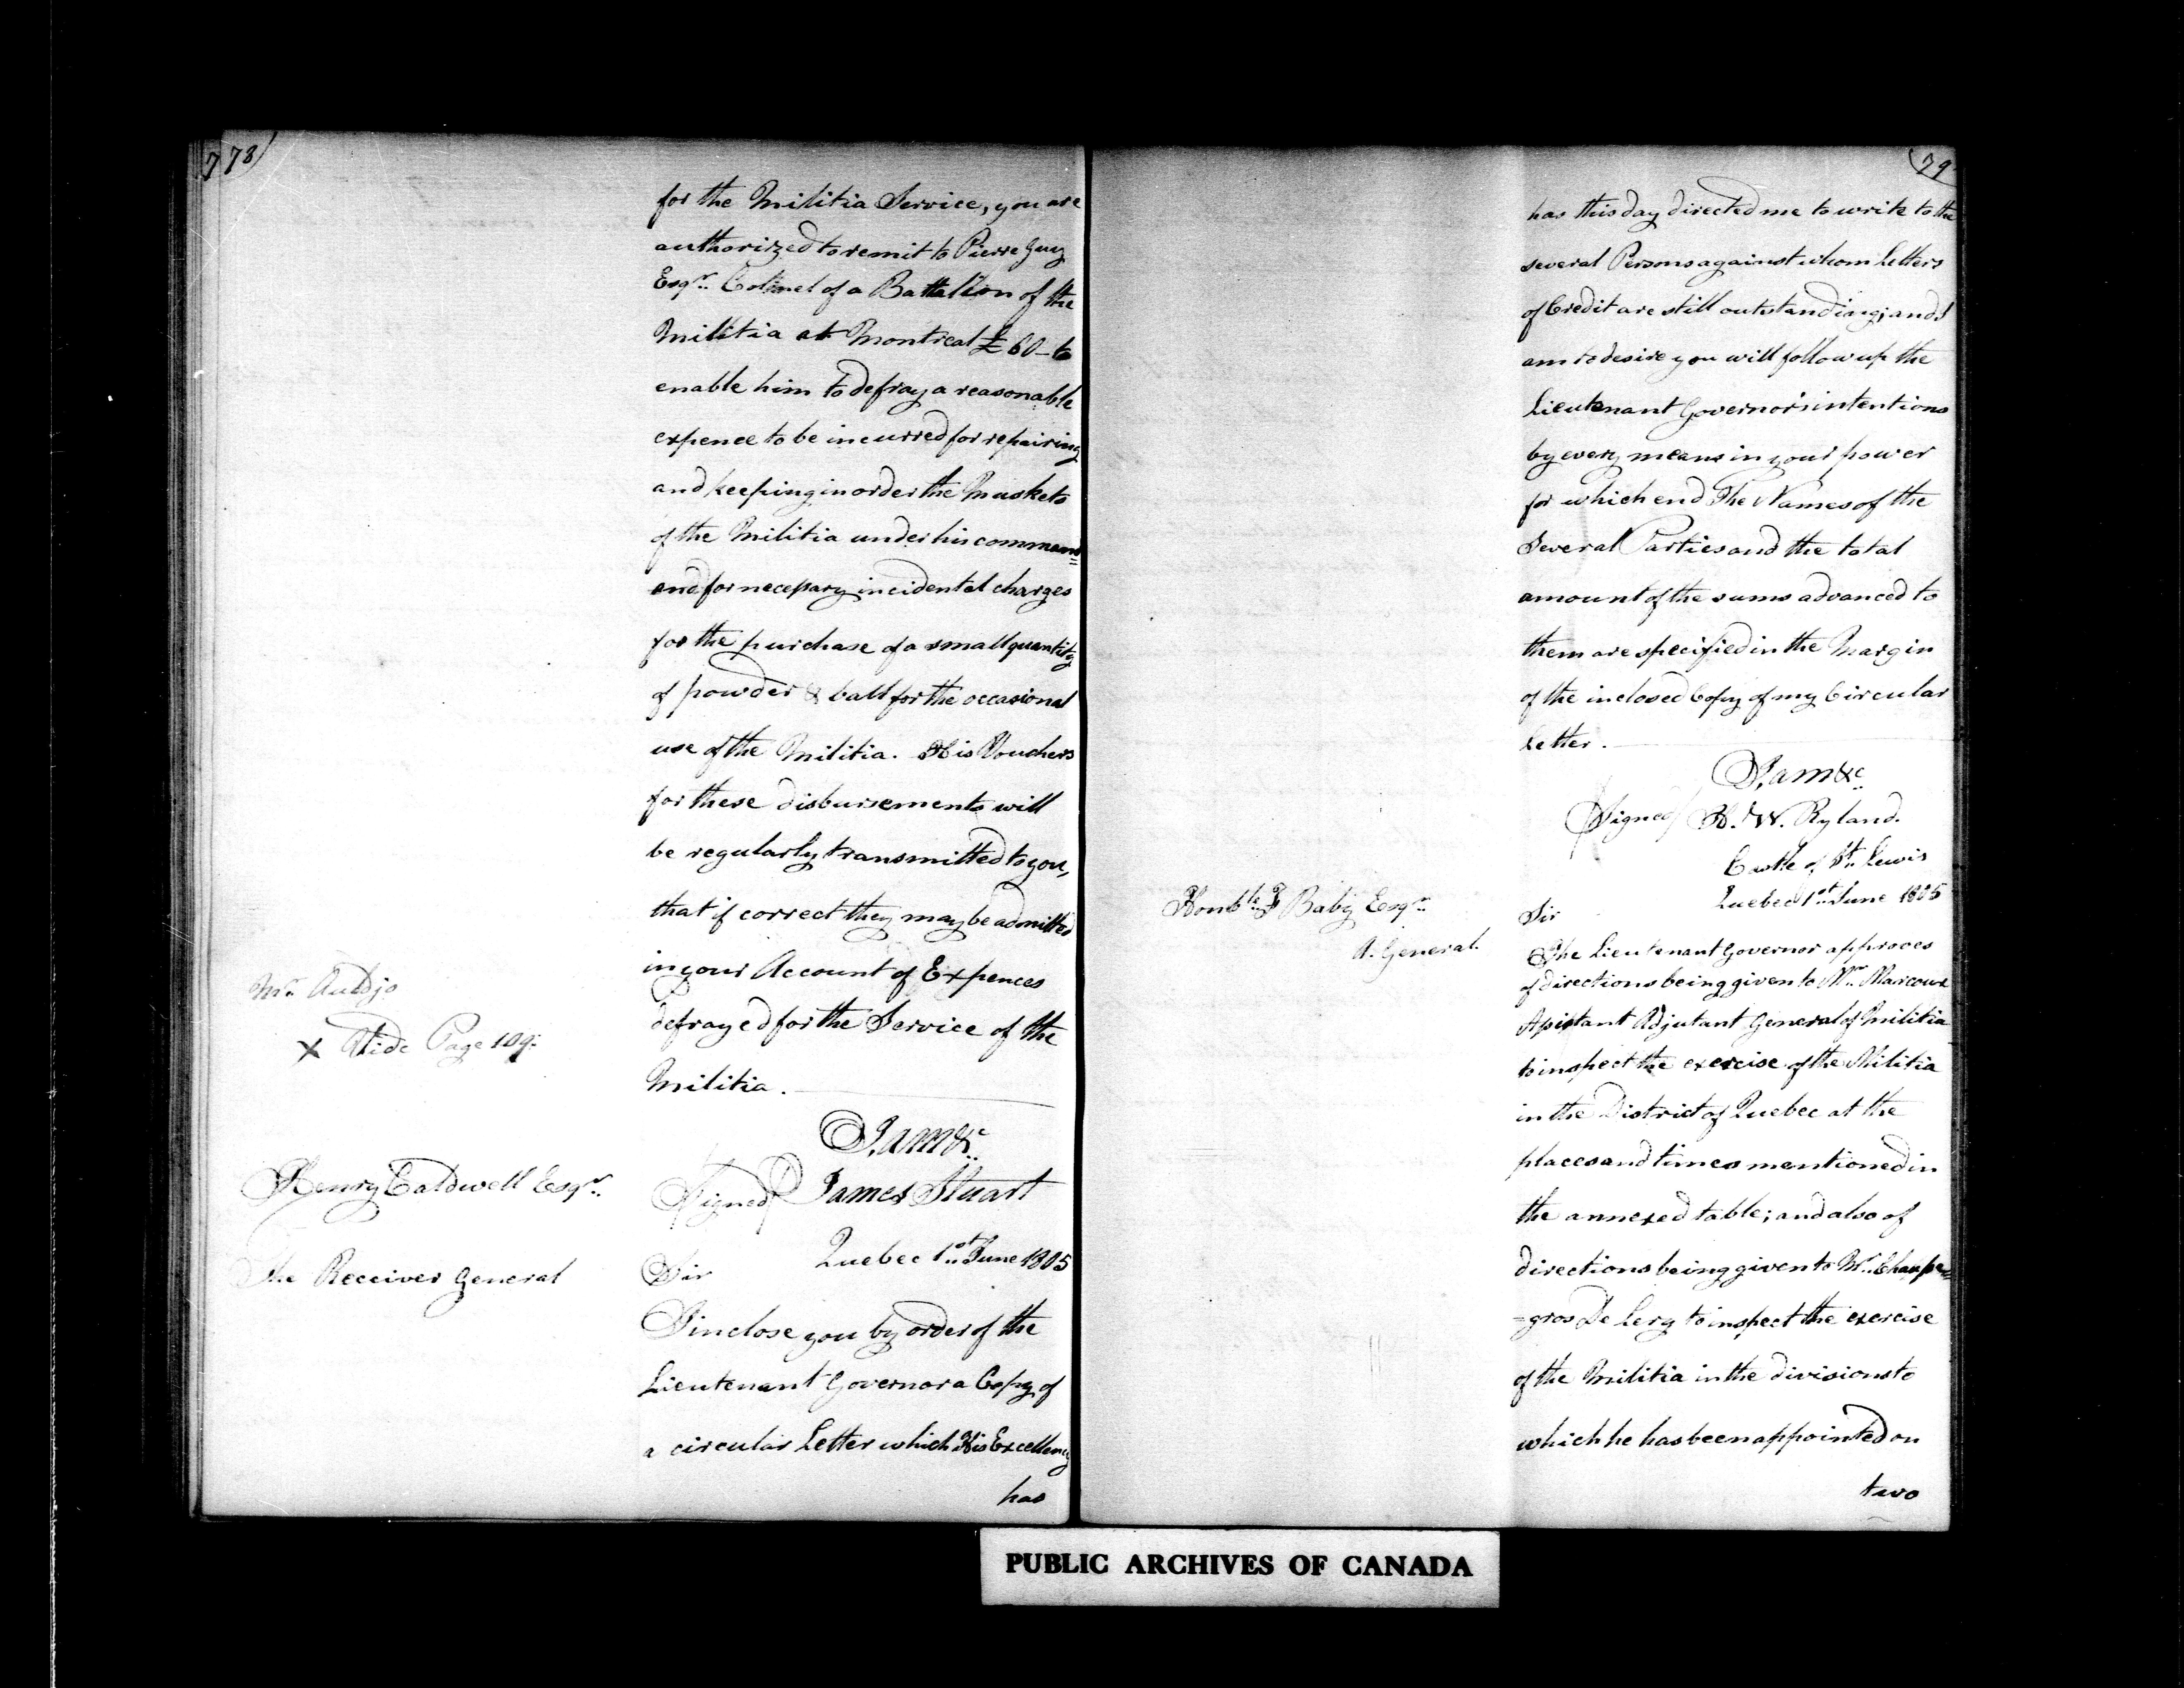 78)
for the Militia Service, you are
authorized to remit to Pierre Guy
Esqr. Colonel of a Battalion of the
Militia at Montreal £60 – to
enable him to defray a reasonable
expence to be incurred for repairing
and keeping in order the Muskets
of the Militia under his command
and for necessary incidental charges
for the purchase of a small quantity
of powder & ball for the occasional
use of the Militia. His Vouchers
for these disbursements will
be regularly transmitted to you,
that if correct they may be admitted
in your Account of Expences
defrayed for the Service of the
Militia.
I am &c.
Signed James Stuart
Mr. Auldjo
x Vide Page 109.
Henry Caldwell Esqr.
The Receiver General
Quebec 1st June 1805
Sir
I inclose you by order of the
Lieutenant Governor a Copy of
a circular Letter which His Excellency
has
(79
has this day directed me to write to the
several Persons against whom Letters
of Credit are still outstanding; and I
am to desire you will follow up the
Lieutenant Governor's intentions
by every means in your power
for which end The Names of the
Several Parties and the total
amount of the sums advanced to
them are specified in the Margin
of the inclosed Copy of my Circular
Letter.
I am &c.
Signed H. W. Ryland.
Castle of St. Lewis
Quebec 1st June 1805
Honble. F Baby Esqr.
A. General.
Sir
The Lieutenant Governor approves
of directions being given to Mr. Marcoux
Assistant Adjutant General of Militia
to inspect the exercise of the Militia
in the District of Quebec at the
places and times mentioned in
the annexed table; and also of
directions being given to Mr. Chausse=
=gros De Lery to inspect the exercise
of the Militia in the divisions to
which he has been appointed on
two
PUBLIC ARCHIVES OF CANADA